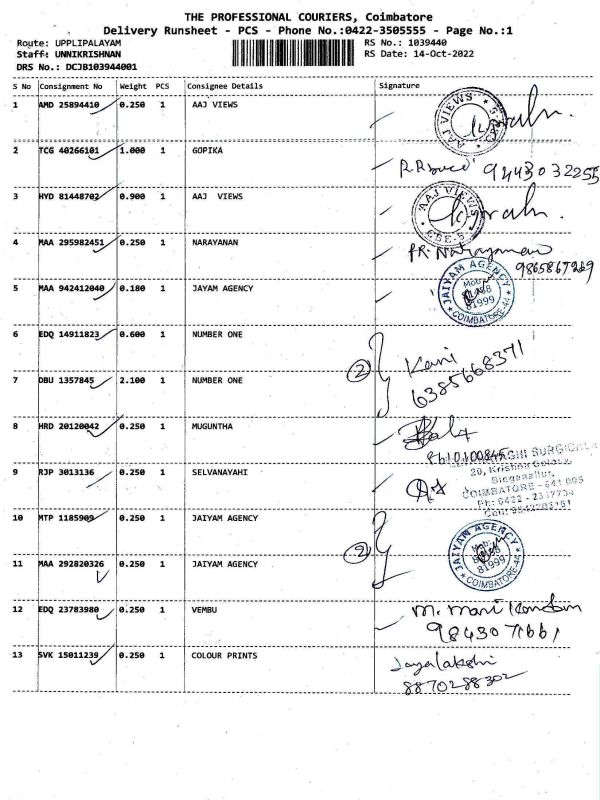 THE PROFESSIONAL COURIERS, Coimbatore
Delivery Runsheet - PCS - Phone No.:0422-3505555 - Page No.:1
Route: UPPLIPALAYAM RS No.: 1039440
Staff: UNNIKRISHNAN RS Date: 14-Oct-2022
DRS No.: DCJB103944001
S No Consignment No Weight PCS Consignee Details Signature
1 AMD 25894410 0.250 1 AAJ VIEWS
AAJ VIEWS
2 TCG 40266101 1.000 1 GOPIKA
9443032255
3 HYD 81448702 0.900 1 AAJ VIEWS
AAJ VIEWS CBE-5
4 MAA 295982451 0.250 1 NARAYANAN
PR. Narayanan
9865867269
5 MAA 942412040 0.180 1 JAYAM AGENCY
JAIYAM AGENCY Mob: 81999 COIMBATORE-44
6 EDQ 14911823 0.600 1 NUMBER ONE
2 Kani
6385668371
7 DBU 1357845 2.100 1 NUMBER ONE
8 HRD 20120042 0.250 1 MUGUNTHA
Bala
9 RJP 3013136 0.250 1 SELVANAYAHI
SURGICAL
20, Krishna
Singanallur,
COIMBATORE - 641 005
10 MTP 1185909 0.250 1 JAIYAM AGENCY
2
JAIYAM AGENCY Mob: 81999 COIMBATORE-44
11 MAA 292820326 0.250 1 JAIYAM AGENCY
12 EDQ 23783980 0.250 1 VEMBU
M. Mani Kandan
9843071661
13 SVK 15011239 0.250 1 COLOUR PRINTS
Jayalakshi
8870288302